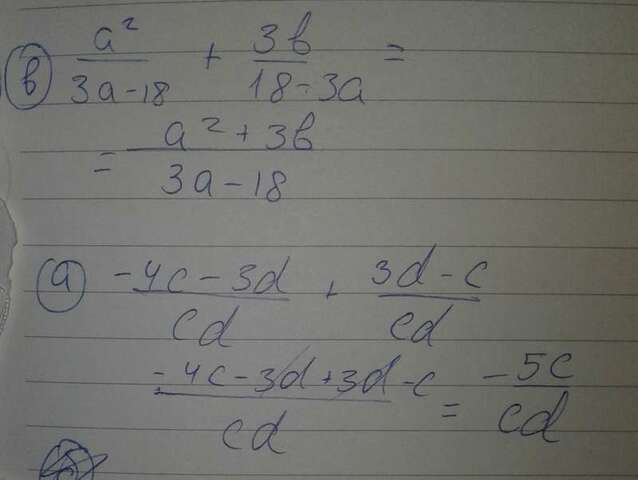 в) a²/(3a-18) + 3b/(18-3a) =
= (a²+3b)/(3a-18)
а) (-4c-3d)/cd + (3d-c)/cd
(-4c-3d+3d-c)/cd = -5c/cd